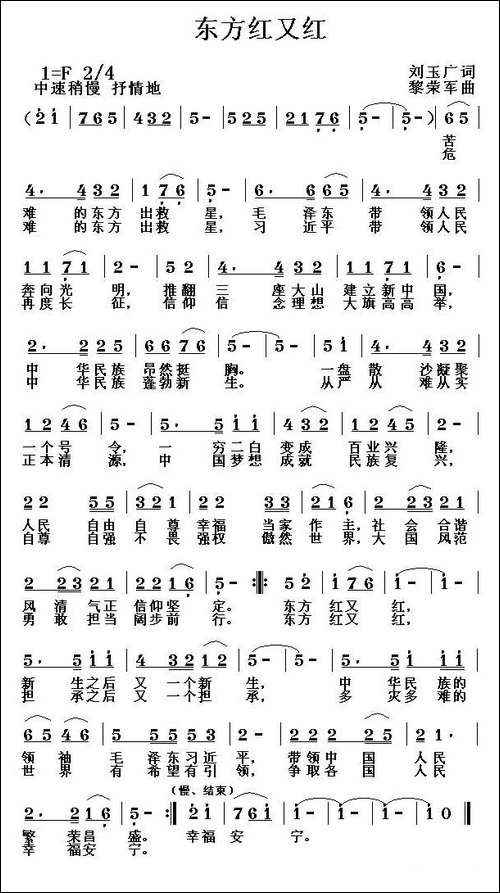 东方红又红
1=F 2/4
刘玉广词
中速稍慢 抒情地
黎荣军曲
(2̇1̇ | 765 | 432 | 5- | 525 | 2176 | 5- | 5-) | 65 |
苦
危
4. 432 | 176 | 5- | 6. 665 | 4. 432 |
难 的东方 出救 星，毛 泽东 带 领人民
难 的东方 出救 星，习 近平 带 领人民
1171 | 2- | 52 | 4. 432 | 1171 | 6- |
奔向光 明，推翻 三 座大山 建立新中 国，
再度长 征，信仰信 念理想 大旗高高 举，
2. 225 | 6676 | 5- | 5- | 51̇ | 4. 432 |
中 华民族 昂然挺 胸。 一盘 散 沙凝聚
中 华民族 蓬勃新 生。 从严 从 难从实
1246 | 5. 5 | 6545 | 1245 | 2- |
一个号 令，一 穷二白 变成 百业兴 隆，
正本清 源，中 国梦想 成就 民族复 兴，
22 55 | 321 | 2222 | 216 | 2 2321 |
人民 自由 自尊 幸福 当家 作 主，社 会 合谐
自尊 自强 不畏 强权 傲然 世 界，大 国 风范
2 2321 | 2216 | 5- :||: 52̇ | 1̇76 | 1̇- | 1̇- |
风 清 气正 信仰坚 定。 东方 红又 红，
勇 敢 担当 阔步前 行。 东方 红又 红，
5. 51̇1̇ | 4. 43212 | 5- | 5. 51̇1̇ |
新 生之后 又 一个新 生， 中 华民族的
担 承之后 又 一个担 承， 多 灾多难的
6546 | 5 5553 | 2- | 5524 | 5 46 |
领 袖 毛 泽东习近 平，带领中 国 人民
世 界 有 希望有引 领，争取各 国 人民
(慢、结束)
2. 216 | 5- :|| 2̇1̇ | 761̇ | 1̇- | 1̇- | 1̇0 ||
繁 荣昌 盛。 幸福 安 宁。
幸 福安 宁。